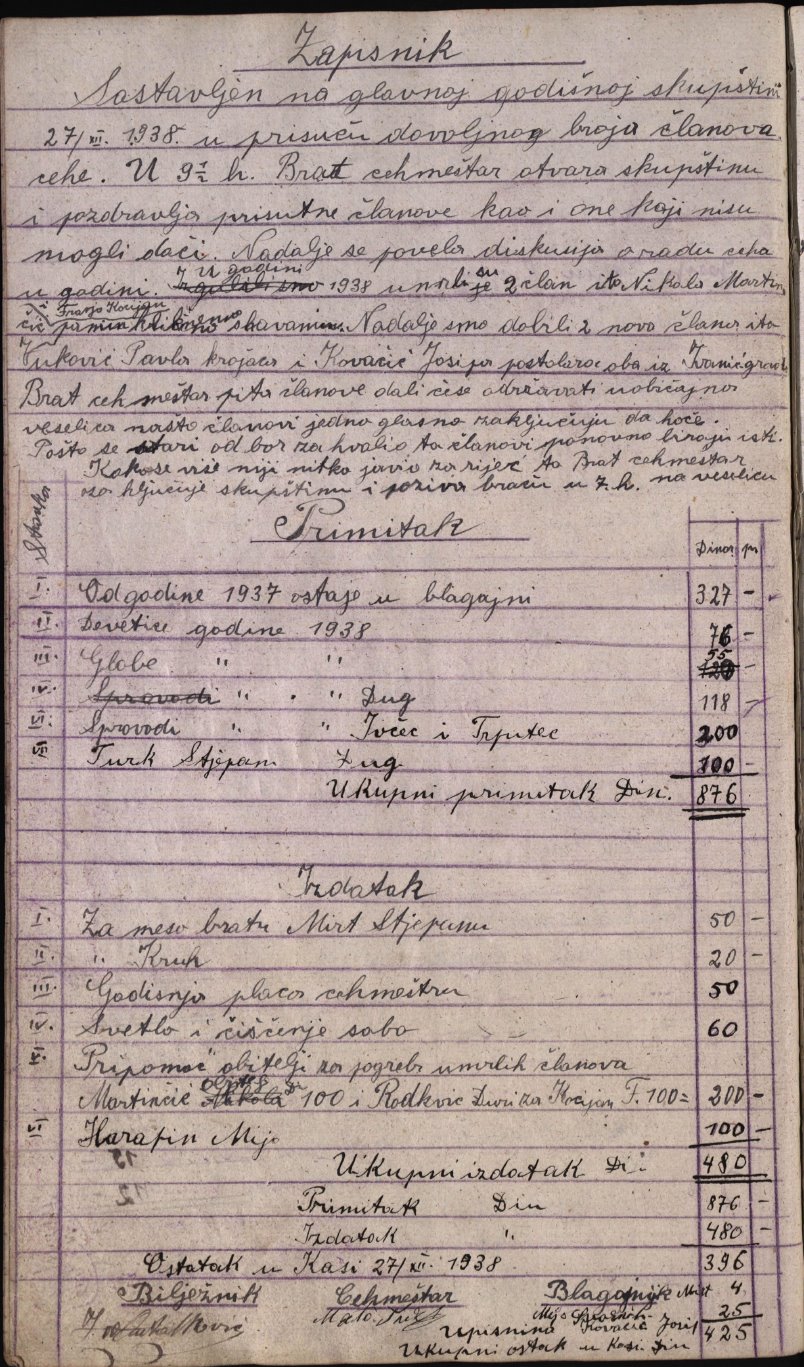 Zapisnik
Sastavljen na glavnoj godišnoj skupštini
27/XII. 1938. u prisuću dovoljnog broja članova
cehe. U 9½ h. Brat cehmeštar otvara skupštinu
i pozdravlja prisutne članove kao i one koji nisu
mogli doći. Nadalje se povela diskusija o radu ceha
u godini. U godini 1938 umrli su 2 član i to Nikola Martin
čić i Franjo Kocijan slava im. Nadalje smo dobili 2 nova člana i to
Vuković Pavla krojača i Kovačić Josipa postolara oba iz Ivanićgrada
Brat ceh meštar pita članove dali će se održavati uobičajna
veselica našto članovi jedno glasno zaključuju da hoće.
Pošto se stari odbor zahvalio to članovi ponovno biraju isti.
Kako se više niji nitko javio za riječ to Brat cehmeštar
zaključuje skupštinu i poziva braću u 7. h. na veselicu
Stavka
Primitak
Dinar pr
I. Od godine 1937 ostaje u blagajni 327 -
II. Devetice godine 1938 76 -
III. Globe " " 55 120 -
IV. Sprovodi " " " Dug 118 -
V. Sprovodi " " Ivčec i Trputec 200
VI. Turk Stjepan Dug 100 -
Ukupni primitak Din. 876
Izdatak
I. Za meso bratu Mirt Stjepanu 50 -
II. " Kruh 20 -
III. Godisnja placa cehmeštru 50
IV. Svetlo i čiščenje sobo 60
V. Pripomoć obitelji za pogreb umrlih članova
Martinčić Nikola 100 i Rodković Đuri za Kocijan F. 100= 200 -
VI. Harapin Mijo 100 -
Ukupni izdatak Di 480
Primitak Din 876 -
Izdatak " 480 -
Ostatak u Kasi 27/XII. 1938 396
Bilježnik Cehmeštar Blagajnik Mirt 4
Mato
Upisnina Kovačić Josip 25
Ukupni ostak u Kasi Din 425